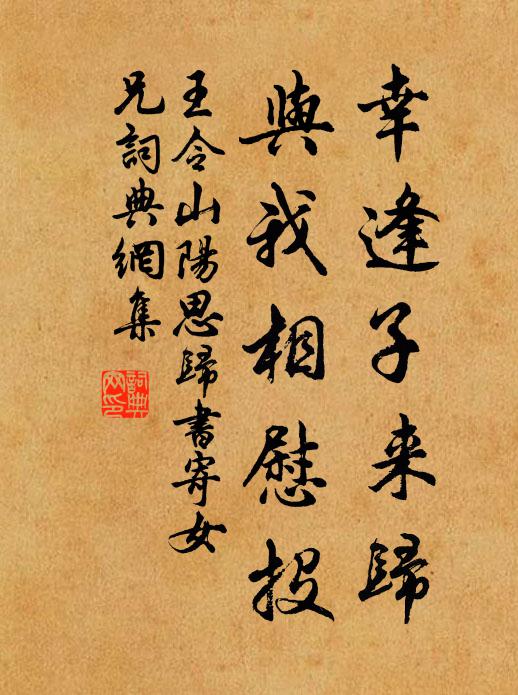 幸逢子来歸
與我相慰投
王令山陽思歸書寄女
兄詞典網集
詞典
网印